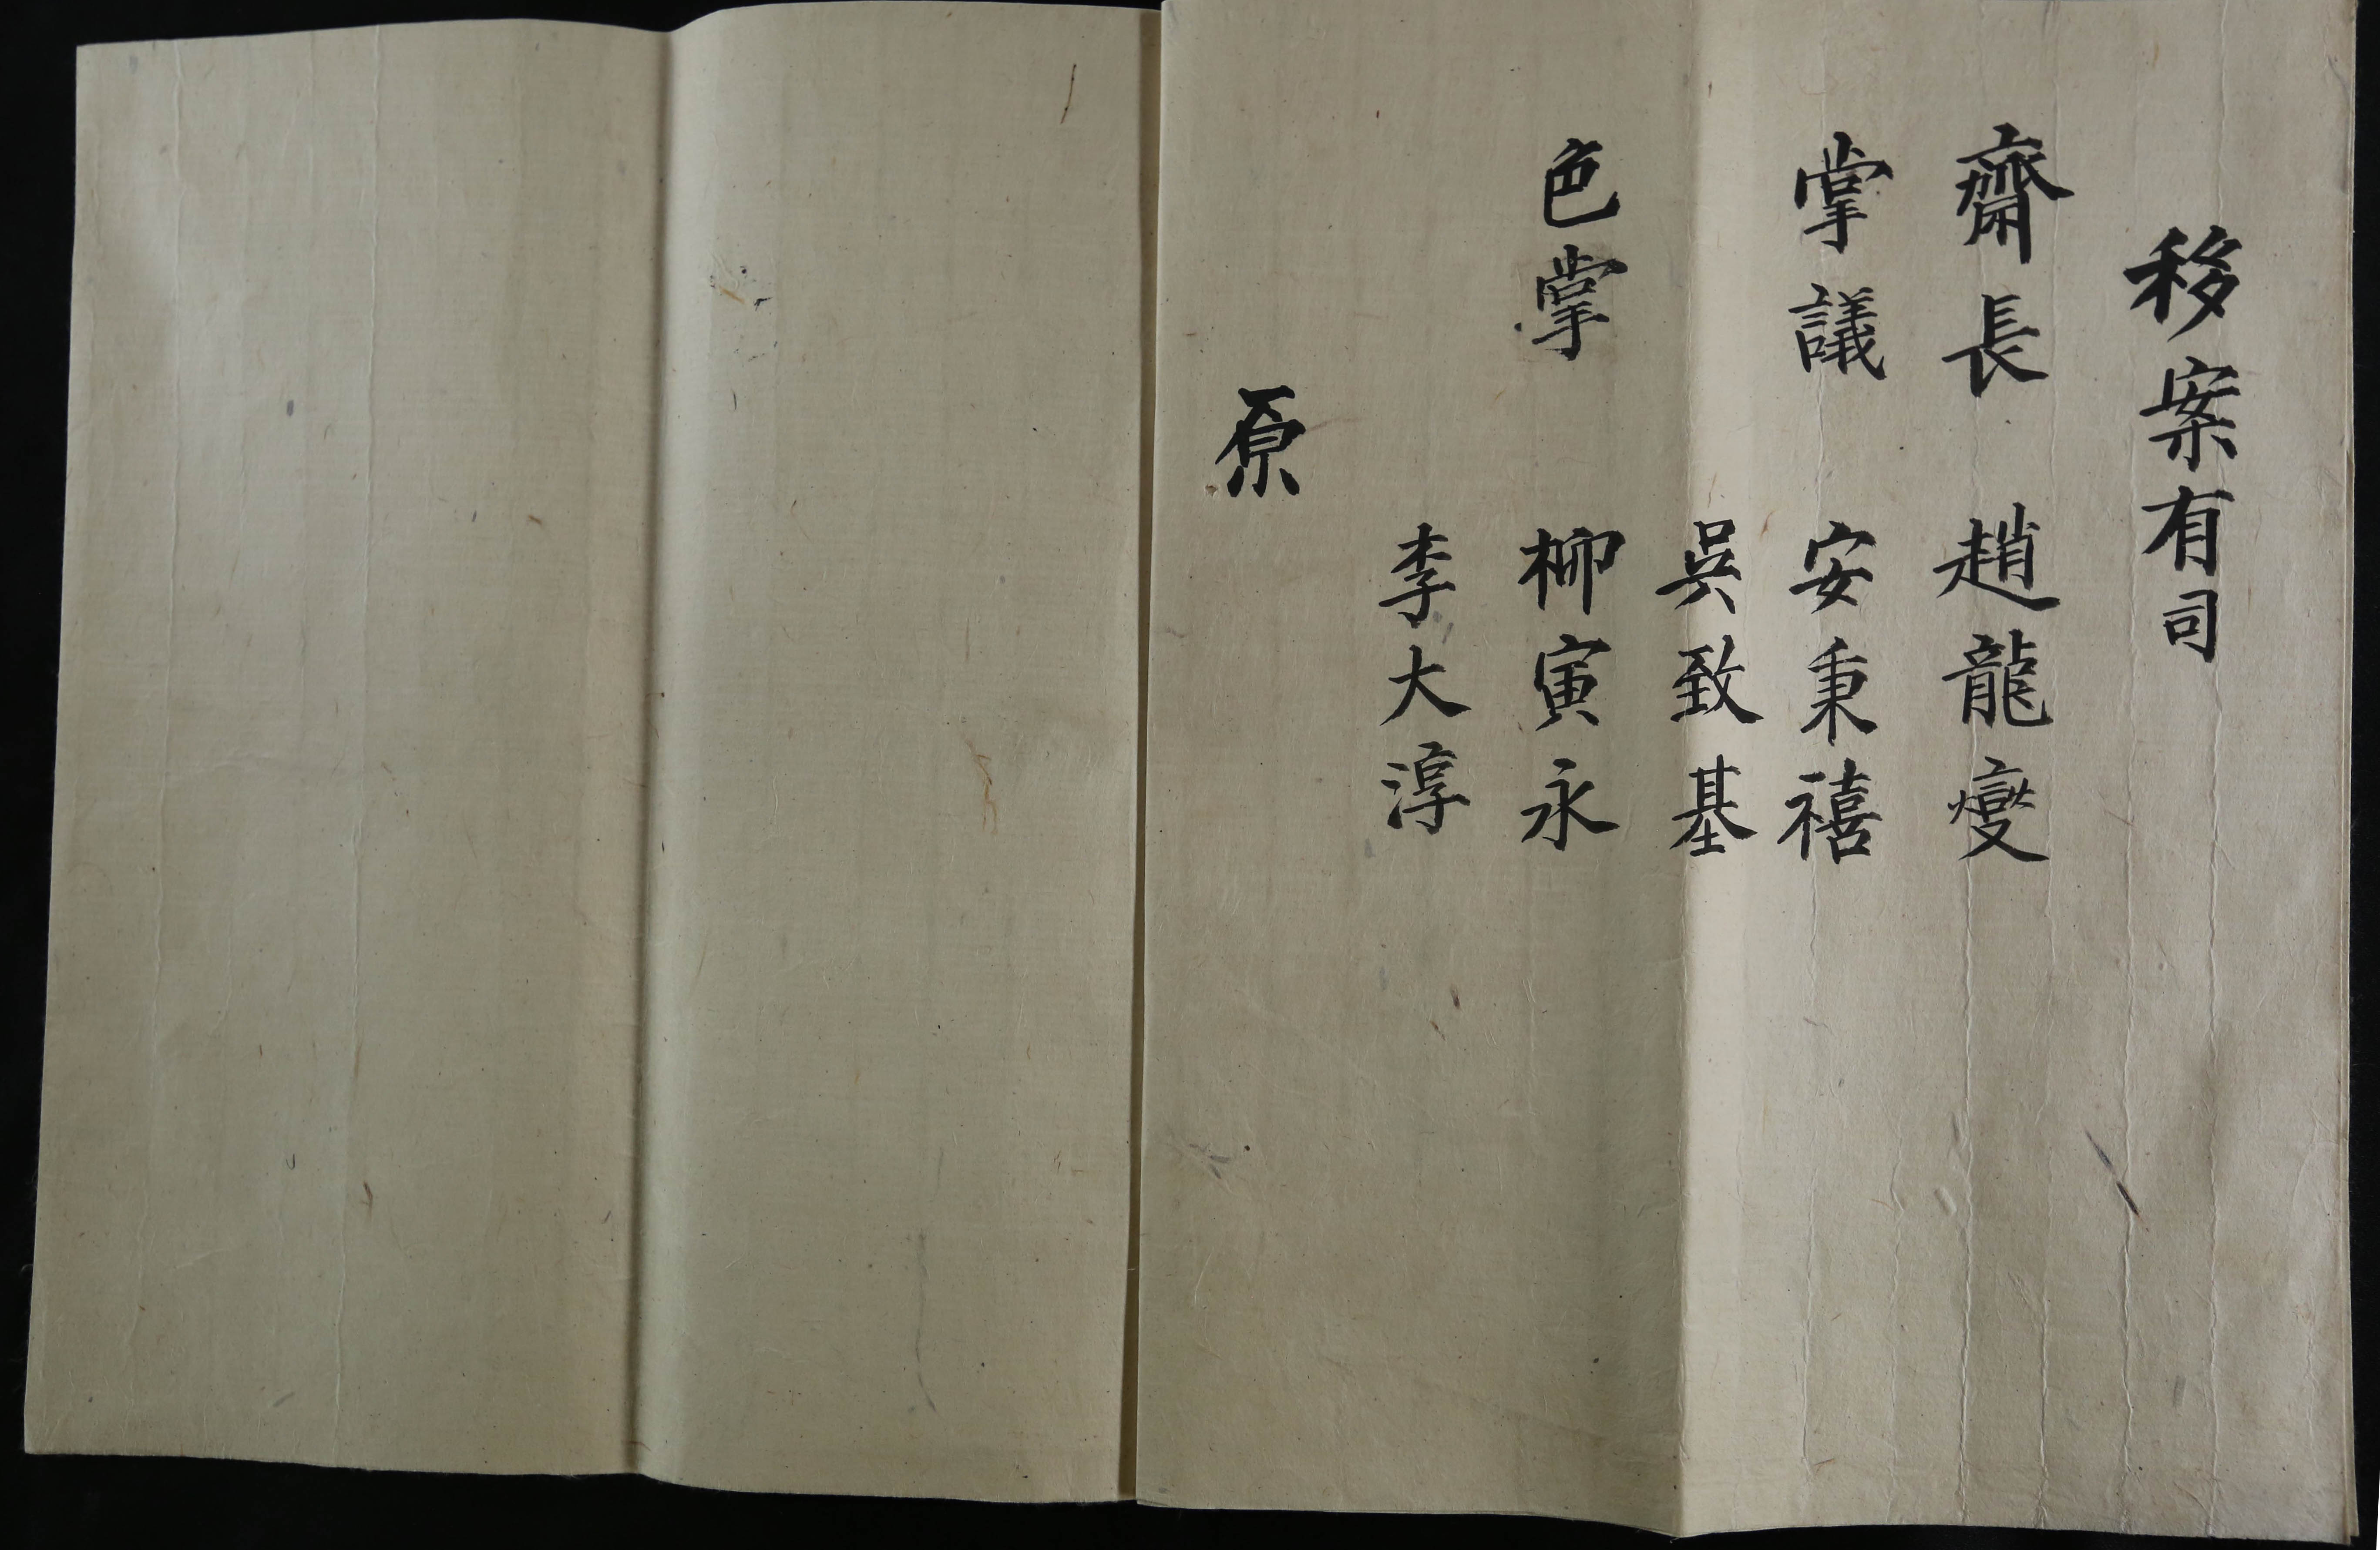 移案有司
齋長 趙龍燮
掌議 安秉禧
吳致基
色掌 柳寅永
李大淳
原